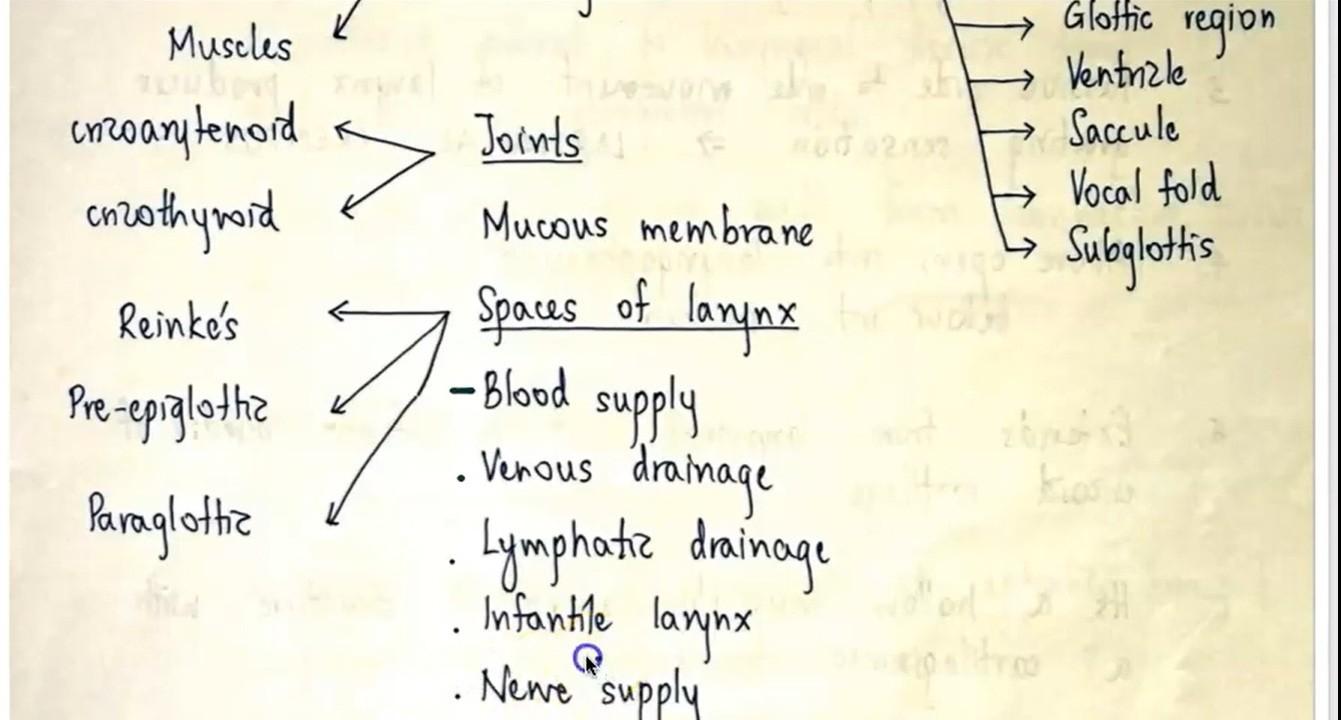 Muscles
cricoarytenoid
cricothyroid
Reinke's
Pre-epiglottic
Paraglottic
Joints
Mucous membrane
Spaces of larynx
- Blood supply
. Venous drainage
. Lymphatic drainage
. Infantile larynx
. Nerve supply
Glottic region
Ventricle
Saccule
Vocal fold
Subglottis